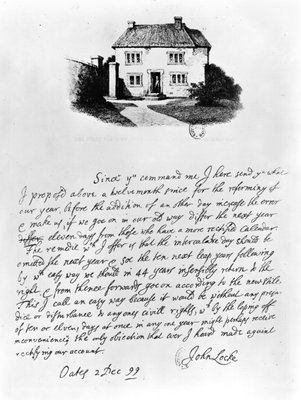 Since yu command me I here send you what
I proposd above a twelvemonth since for the reforming of
our year, before the addition of an other day increase the error
& make us, if we goe on in our old way differ the next year
eleven days from those who have a more rectified Calendar.
The remedie wch I offer is that the intercalar day should be
omitted the next year & soe the ten next leap years following
by wch easy way we should in 44 years insensibly return to the
right & from thence forwards goe on according to the new stile.
This I call an easy way because it would be without any preju
dice or disturbance to any ones civill rights, wch by the loping off
of ten or eleven days at once in any one year might perhaps receive
inconvenience, the only objection that ever I heard made against
rectifying our account.
John Locke
Oates 2 Dec 99